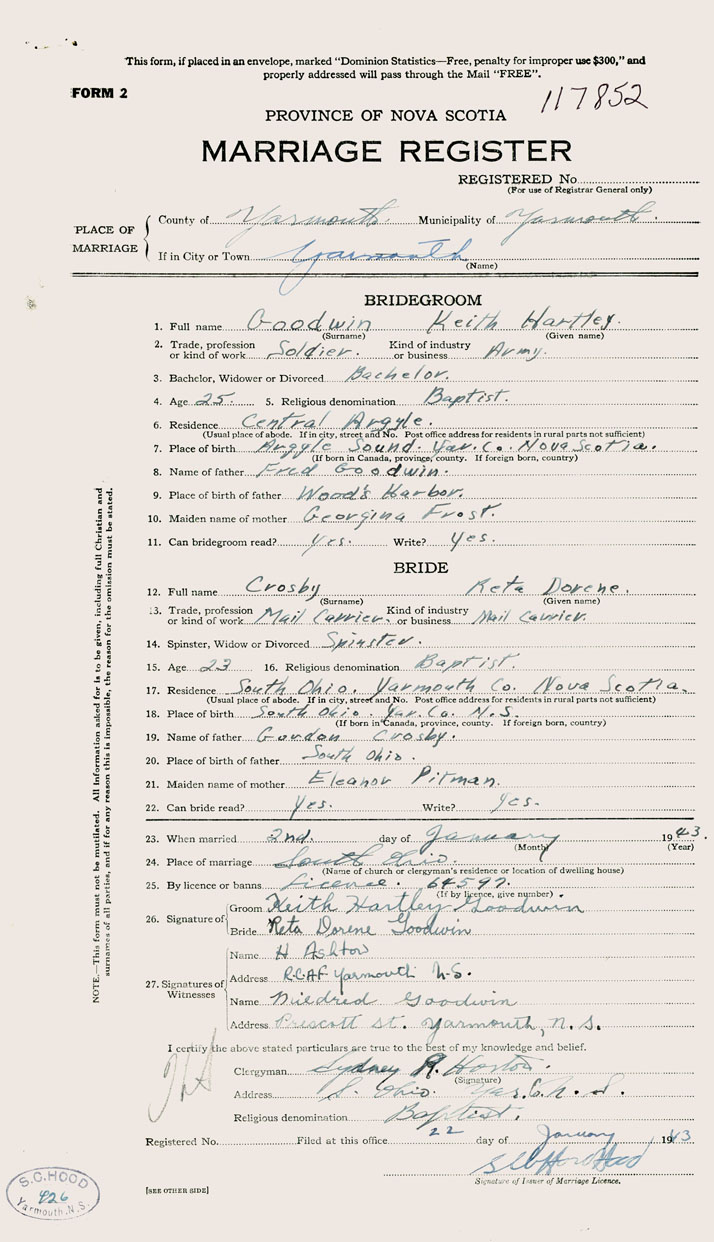 This form, if placed in an envelope, marked "Dominion Statistics—Free, penalty for improper use $300," and
properly addressed will pass through the Mail "FREE".
FORM 2
117852
PROVINCE OF NOVA SCOTIA
MARRIAGE REGISTER
REGISTERED No.
(For use of Registrar General only)
PLACE OF MARRIAGE
County of Yarmouth. Municipality of Yarmouth.
If in City or Town Yarmouth
(Name)
BRIDEGROOM
1. Full name Goodwin Keith Hartley.
(Surname) (Given name)
2. Trade, profession or kind of work Soldier. Kind of industry or business Army.
3. Bachelor, Widower or Divorced Bachelor.
4. Age 25. 5. Religious denomination Baptist.
6. Residence Central Argyle.
(Usual place of abode. If in city, street and No. Post office address for residents in rural parts not sufficient)
7. Place of birth Argyle Sound. Yar. Co. Nova Scotia.
(If born in Canada, province, county. If foreign born, country)
8. Name of father Fred Goodwin.
9. Place of birth of father Wood's Harbor.
10. Maiden name of mother Georgina Frost.
11. Can bridegroom read? Yes. Write? Yes.
BRIDE
12. Full name Crosby Reta Dorene.
(Surname) (Given name)
13. Trade, profession or kind of work Mail Carrier. Kind of industry or business Mail Carrier.
14. Spinster, Widow or Divorced Spinster.
15. Age 23 16. Religious denomination Baptist.
17. Residence South Ohio. Yarmouth Co. Nova Scotia.
(Usual place of abode. If in city, street and No. Post office address for residents in rural parts not sufficient)
18. Place of birth South Ohio. Yar. Co. N.S.
(If born in Canada, province, county. If foreign born, country)
19. Name of father Gordon Crosby.
20. Place of birth of father South Ohio.
21. Maiden name of mother Eleanor Pitman.
22. Can bride read? Yes. Write? Yes.
23. When married 2nd. day of January 1943.
(Month) (Year)
24. Place of marriage South Ohio.
(Name of church or clergyman's residence or location of dwelling house)
25. By licence or banns Licence. 64597.
(If by licence, give number)
26. Signature of
Groom Keith Hartley Goodwin
Bride Reta Dorene Goodwin
27. Signatures of Witnesses
Name H Ashton
Address R.C.A.F Yarmouth N.S.
Name Mildred Goodwin
Address Prescott St. Yarmouth, N.S.
I certify the above stated particulars are true to the best of my knowledge and belief.
Clergyman Sydney R. Horton.
(Signature)
Address S. Ohio. Yar. Co. N.S.
Religious denomination Baptist.
Registered No. Filed at this office 22 day of January 1943
Signature of Issuer of Marriage Licence.
[SEE OTHER SIDE]
S.C. HOOD
926
Yarmouth, N.S.
NOTE.—This form must not be mutilated. All Information asked for is to be given, including full Christian and
surnames of all parties, and if for any reason this is impossible, the reason for the omission must be stated.